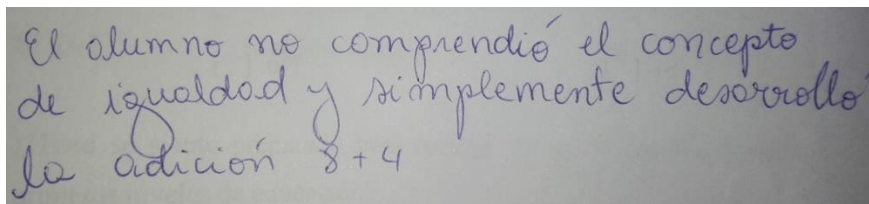 El alumno no comprendió el concepto
de igualdad y simplemente desarrolló
la adición 8 + 4